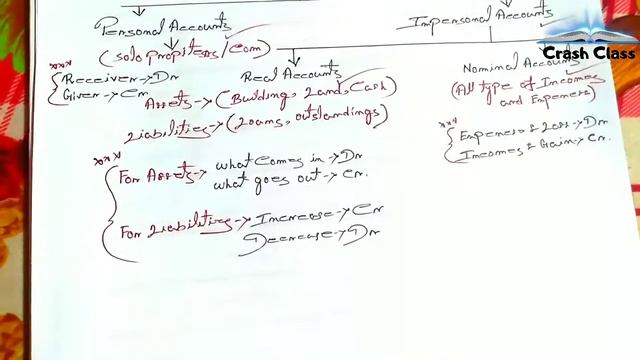 Personal Accounts
Impersonal Accounts
Crash Class
(Solo Propiters/Com)
Receiver → Dr
Giver → Cr
Real Accounts
Assets → (Building, Land, Cash)
Liabilities → (Loans, outstandings)
Nominal Accounts
(All type of Incomes
and Expenses)
Expenses & Loss → Dr
Incomes & Gain → Cr.
For Assets → what comes in → Dr
what goes out → Cr.
For Liabilities → Increase → Cr
Decrease → Dr